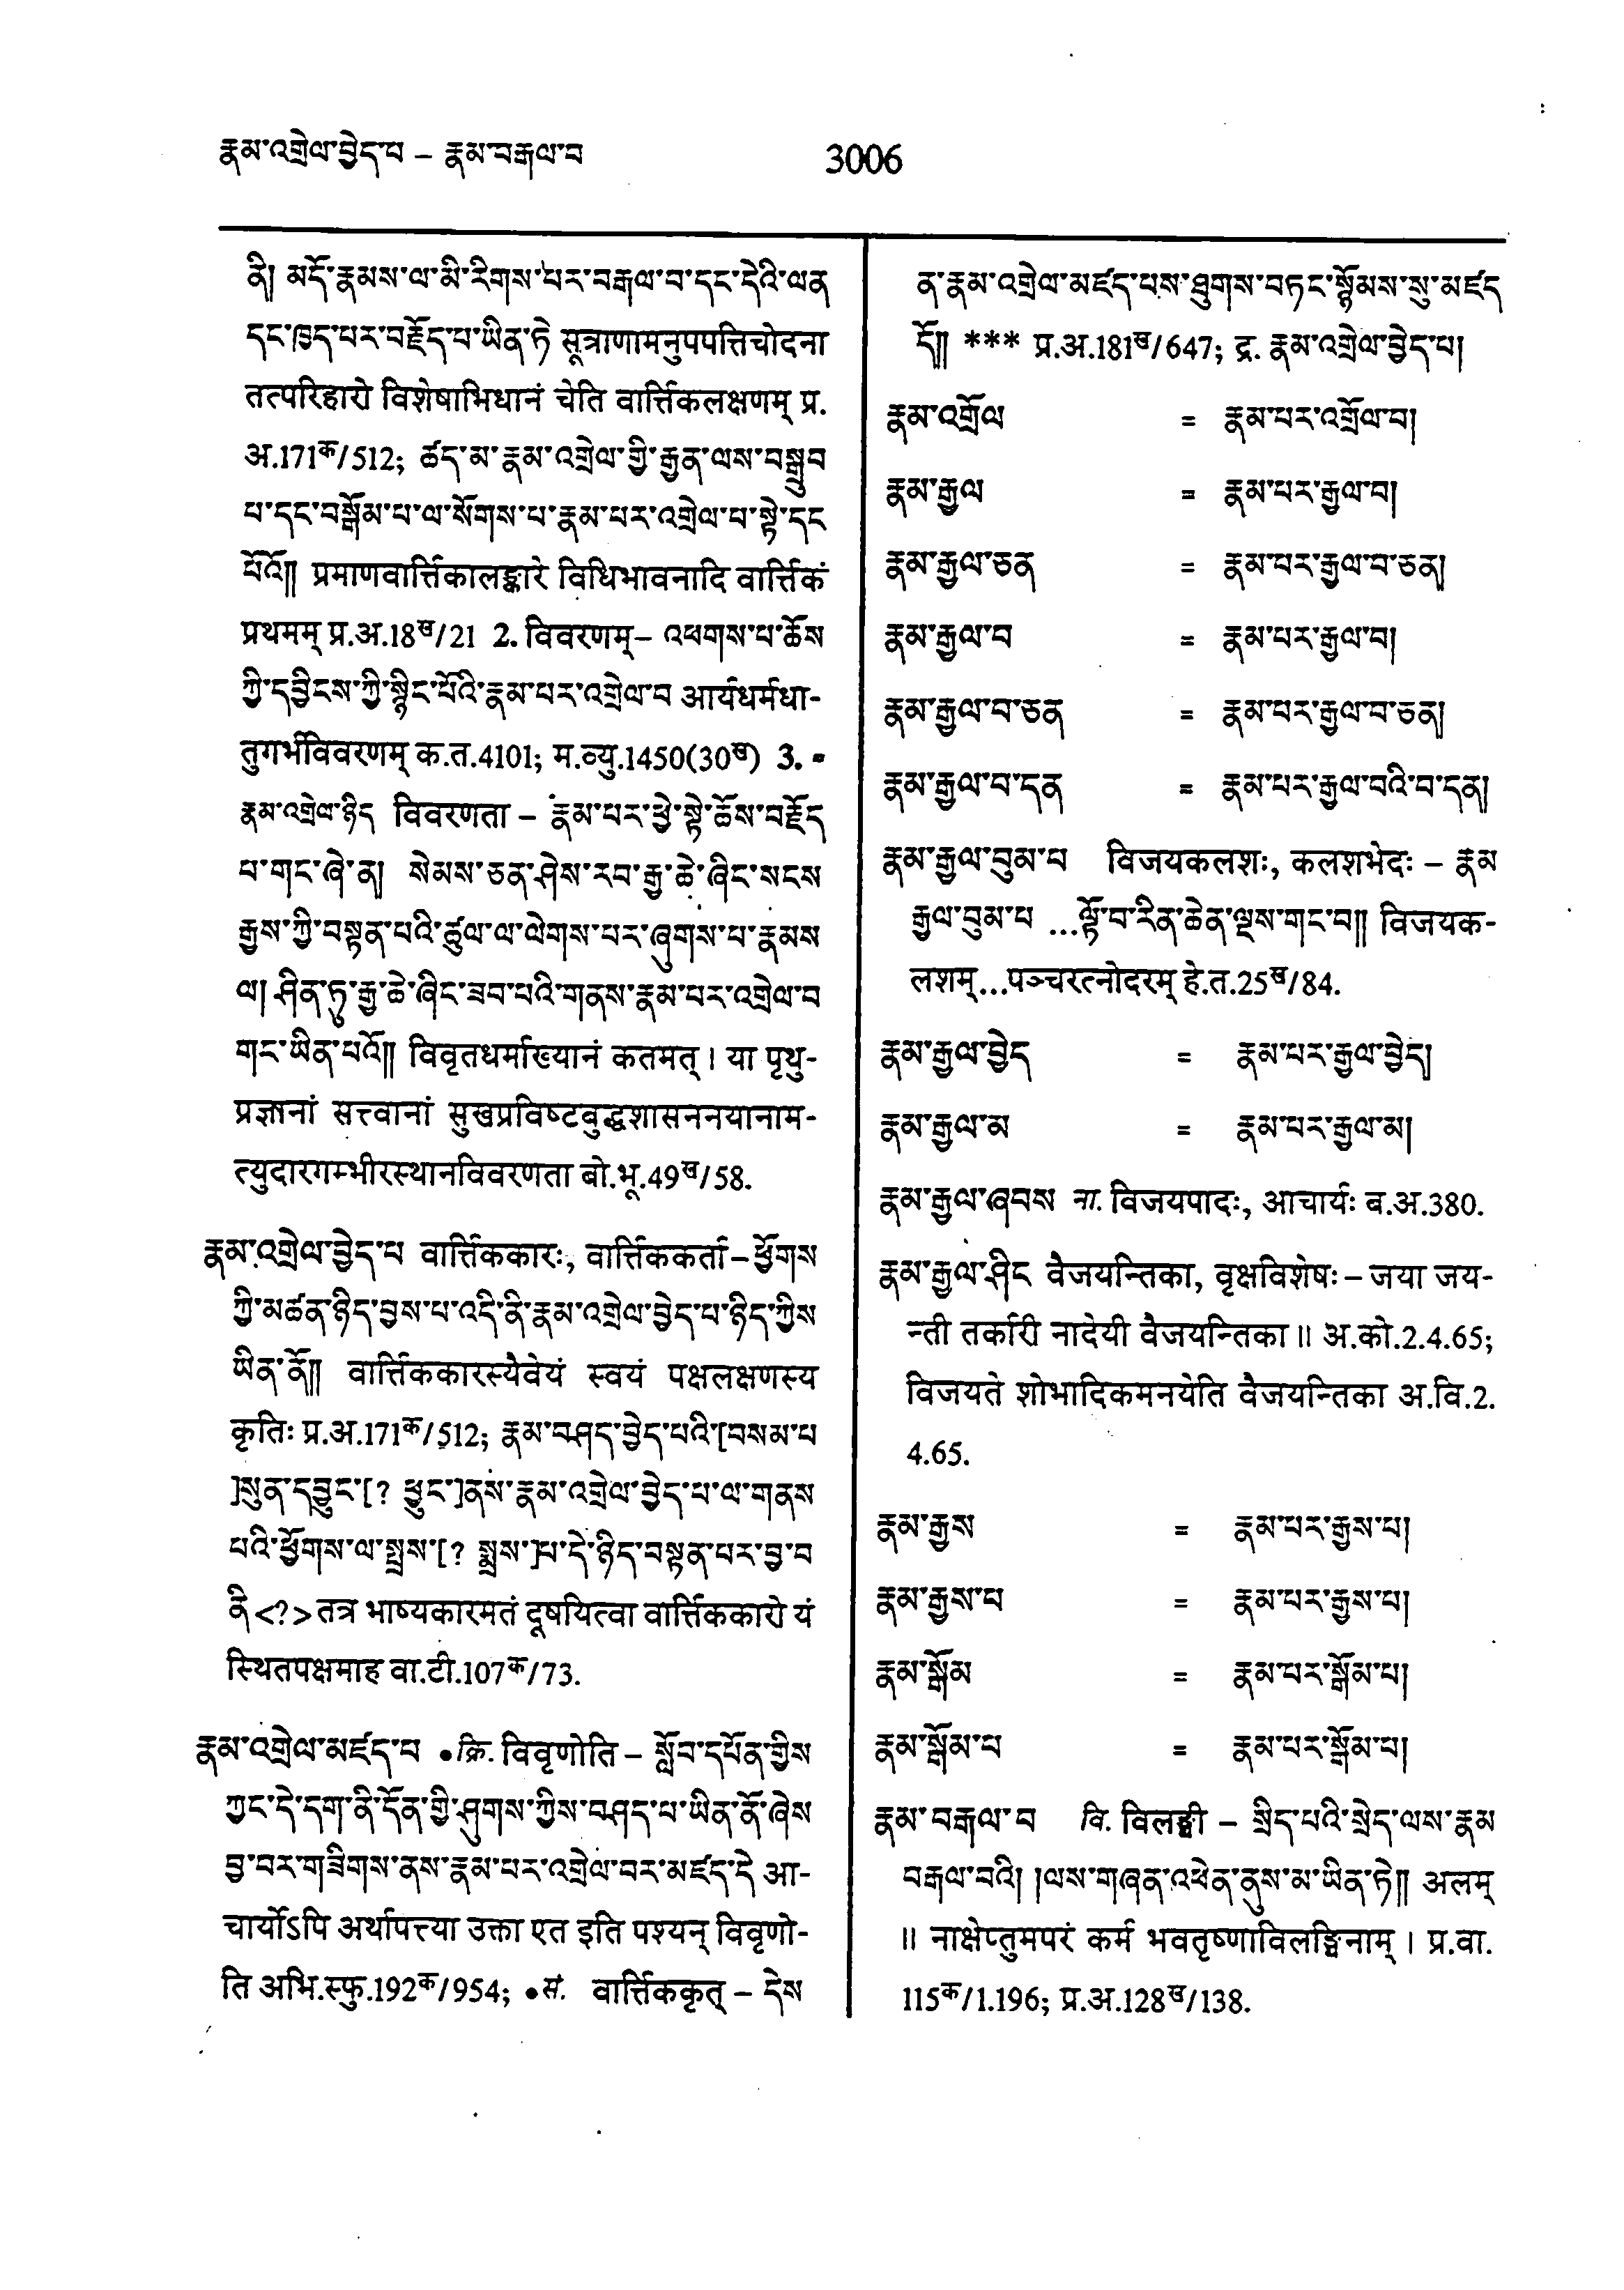 རྣམ་འགྲེལ་བྱེད་པ – རྣམ་བརྒལ་བ
3006
ནི། མདོ་རྣམས་ལ་མི་རིགས་པར་བརྒལ་བ་དང་དེའི་ལན
དང་ཁྱད་པར་བརྗོད་པ་ཡིན་ཏེ सूत्राणामनुपपत्तिचोदना
तत्परिहारो विशेषाभिधानं चेति वार्त्तिकलक्षणम् प्र.
अ.171क/512; ཚད་མ་རྣམ་འགྲེལ་གྱི་རྒྱན་ལས་བསྒྲུབ
པ་དང་བསྒོམ་པ་ལ་སོགས་པ་རྣམ་པར་འགྲེལ་བ་སྟེ་དང
པོའོ།། प्रमाणवार्त्तिकालङ्कारे विधिभावनादि वार्त्तिकं
प्रथमम् प्र.अ.18ख/21 2. विवरणम्– འཕགས་པ་ཆོས
ཀྱི་དབྱིངས་ཀྱི་སྙིང་པོའི་རྣམ་པར་འགྲེལ་བ आर्यधर्मधा-
तुगर्भविवरणम् क.त.4101; म.व्यु.1450(30ख) 3. ▪
རྣམ་འགྲེལ་ཉིད विवरणता – རྣམ་པར་ཕྱེ་སྟེ་ཆོས་བརྗོད
པ་གང་ཞེ་ན། སེམས་ཅན་ཤེས་རབ་རྒྱ་ཆེ་ཞིང་སངས
རྒྱས་ཀྱི་བསྟན་པའི་ཚུལ་ལ་ལེགས་པར་ཞུགས་པ་རྣམས
ལ། ཤིན་ཏུ་རྒྱ་ཆེ་ཞིང་ཟབ་པའི་གནས་རྣམ་པར་འགྲེལ་བ
གང་ཡིན་པའོ།། विवृतधर्माख्यानं कतमत् । या पृथु-
प्रज्ञानां सत्त्वानां सुखप्रविष्टबुद्धशासननयानाम-
त्युदारगम्भीरस्थानविवरणता बो.भू.49ख/58.
རྣམ་འགྲེལ་བྱེད་པ वार्त्तिककारः, वार्त्तिककर्ता– ཕྱོགས
ཀྱི་མཚན་ཉིད་བྱས་པ་འདི་ནི་རྣམ་འགྲེལ་བྱེད་པ་ཉིད་ཀྱིས
ཡིན་ནོ།། वार्त्तिककारस्यैवेयं स्वयं पक्षलक्षणस्य
कृतिः प्र.अ.171क/512; རྣམ་བཤད་བྱེད་པའི་[བསམ་པ
]སུན་དབྱུང་[? ཕྱུང་]ནས་རྣམ་འགྲེལ་བྱེད་པ་ལ་གནས
པའི་ཕྱོགས་ལ་སྤྲས་[? སྨྲས་]པ་དེ་ཉིད་བསྟན་པར་བྱ་བ
ནི <?> तत्र भाष्यकारमतं दूषयित्वा वार्त्तिककारो यं
स्थितपक्षमाह वा.टी.107क/73.
རྣམ་འགྲེལ་མཛད་པ • क्रि. विवृणोति – སློབ་དཔོན་གྱིས
ཀྱང་དེ་དག་ནི་དོན་གྱི་ཤུགས་ཀྱིས་བཤད་པ་ཡིན་ནོ་ཞེས
བྱ་བར་གཟིགས་ནས་རྣམ་པར་འགྲེལ་བར་མཛད་དེ आ-
चार्योऽपि अर्थापत्त्या उक्ता एत इति पश्यन् विवृणो-
ति अभि.स्फु.192क/954; • सं. वार्त्तिककृत् – དེས
ན་རྣམ་འགྲེལ་མཛད་པས་ཐུགས་བཏང་སྙོམས་སུ་མཛད
དོ།། *** प्र.अ.181ख/647; द्र. རྣམ་འགྲེལ་བྱེད་པ།
རྣམ་འགྲོལ = རྣམ་པར་འགྲོལ་བ།
རྣམ་རྒྱལ = རྣམ་པར་རྒྱལ་བ།
རྣམ་རྒྱལ་ཅན = རྣམ་པར་རྒྱལ་བ་ཅན།
རྣམ་རྒྱལ་བ = རྣམ་པར་རྒྱལ་བ།
རྣམ་རྒྱལ་བ་ཅན = རྣམ་པར་རྒྱལ་བ་ཅན།
རྣམ་རྒྱལ་བ་དན = རྣམ་པར་རྒྱལ་བའི་བ་དན།
རྣམ་རྒྱལ་བུམ་པ विजयकलशः, कलशभेदः – རྣམ
རྒྱལ་བུམ་པ ...ལྟོ་བ་རིན་ཆེན་ལྔས་གང་བ།། विजयक-
लशम्...पञ्चरत्नोदरम् हे.त.25ख/84.
རྣམ་རྒྱལ་བྱེད = རྣམ་པར་རྒྱལ་བྱེད།
རྣམ་རྒྱལ་མ = རྣམ་པར་རྒྱལ་མ།
རྣམ་རྒྱལ་ཞབས ना. विजयपादः, आचार्यः ब.अ.380.
རྣམ་རྒྱལ་ཤིང वैजयन्तिका, वृक्षविशेषः – जया जय-
न्ती तर्कारी नादेयी वैजयन्तिका ॥ अ.को.2.4.65;
विजयते शोभादिकमनयेति वैजयन्तिका अ.वि.2.
4.65.
རྣམ་རྒྱས = རྣམ་པར་རྒྱས་པ།
རྣམ་རྒྱས་པ = རྣམ་པར་རྒྱས་པ།
རྣམ་སྒོམ = རྣམ་པར་སྒོམ་པ།
རྣམ་སྒོམ་པ = རྣམ་པར་སྒོམ་པ།
རྣམ་བརྒལ་བ वि. विलङ्घी – སྲིད་པའི་སྲེད་ལས་རྣམ
བརྒལ་བའི། །ལས་གཞན་འཕེན་ནུས་མ་ཡིན་ཏེ།། अलम्
॥ नाक्षेप्तुमपरं कर्म भवतृष्णाविलङ्घिनाम् । प्र.वा.
115क/1.196; प्र.अ.128ख/138.